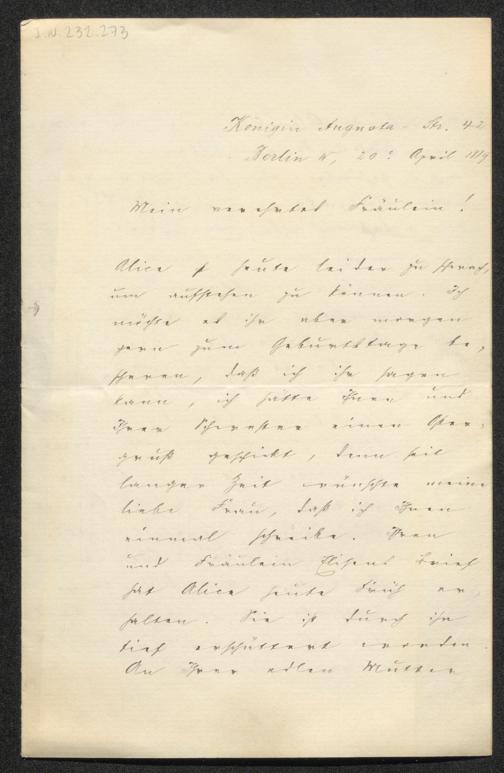 I.N. 232.273
Königin Augusta-Str. 42
Berlin W, 20. April 1889
Mein verehrtes Fräulein!
Alice ist heute leider zu schwach,
um aufstehen zu können. Ich
möchte es ihr aber morgen
gern zum Geburtstage be-
scheren, daß ich ihr sagen
kann, ich hätte Ihnen und
Ihrer Schwester einen Oster-
gruß geschickt, denn seit
langer Zeit wünschte meine
liebe Frau, daß ich Ihnen
einmal schreibe. Ihren
und Fräulein Elisens Brief
hat Alice heute Früh er-
halten. Sie ist durch ihn
tief erschüttert worden.
An Ihrer edlen Mutter